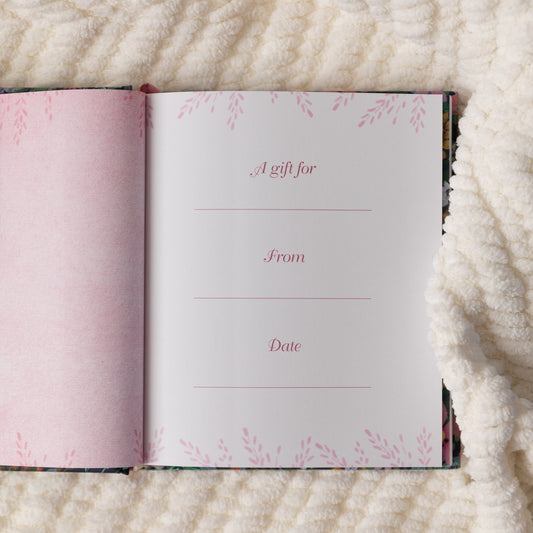 A gift for
From
Date